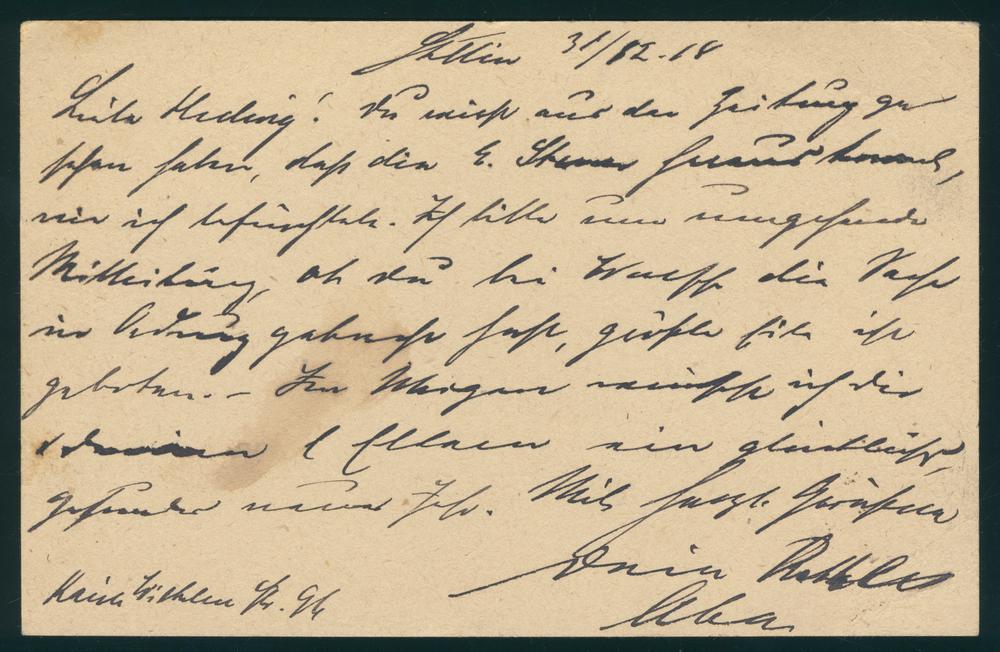 Stettin 31/12.18
Liebe Hedwig! Du wirst aus der Zeitung ge-
sehen haben, daß die E. Steuer heraus kommt,
wie ich befürchtete. Ich bitte um umgehende
Mitteilung, ob du bei Wulff die Sache
in Ordnung gebracht hast, größte Eile ist
geboten. – Im Übrigen wünsche ich dir
& deinen l Eltern ein glückliches,
gesundes neues Jahr. Mit herzl. Grüßen
Dein
Kaiser Wilhelm Str. 96